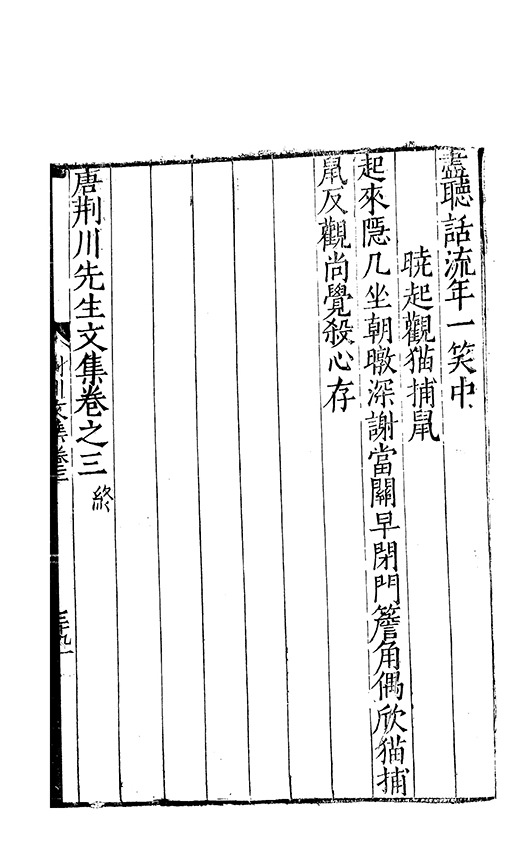 盡聽話流年一笑中
曉起觀猫捕鼠
起來隱几坐朝暾深謝當關早閉門簷角偶欣猫捕
鼠反觀尚覺殺心存
唐荆川先生文集卷之三 終
荆川文集卷三